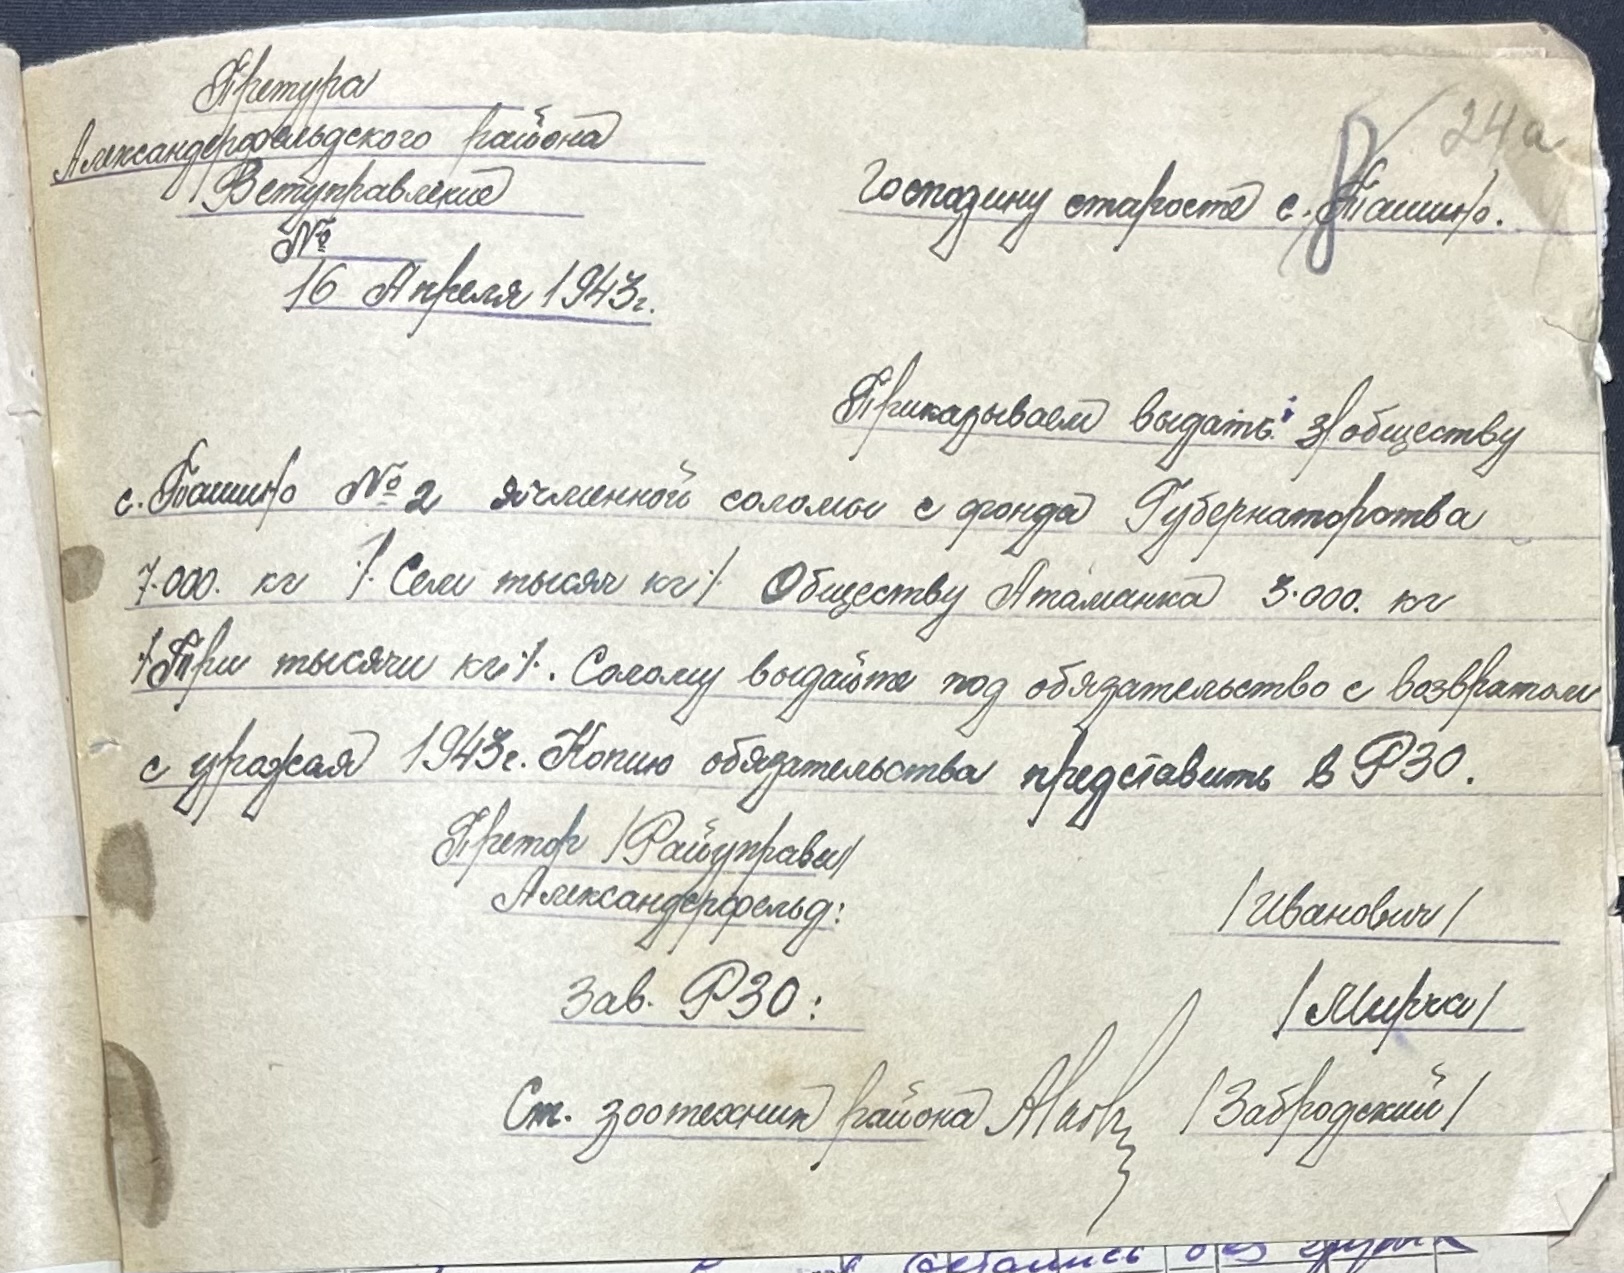 Претура
Александерфельдского района
Ветуправление
№
16 Апреля 1943г.
24а
Господину старосте с. Ташино.
Приказываем выдать: з/обществу
с. Ташино № 2 ячменной соломы с фонда Губернаторства
7.000. кг /. Сем тысяч кг/. Обществу Атаманка 3.000. кг
/Три тысячи кг/. Солому выдайте под обязательство с возвратом
с урожая 1943г. Копию обязательства представить в РЗО.
Претор /Райуправы/
Александерфельд:
/Иванович/
Зав. РЗО:
/Мирча/
Ст. зоотехник района
/Забродский/
остались без